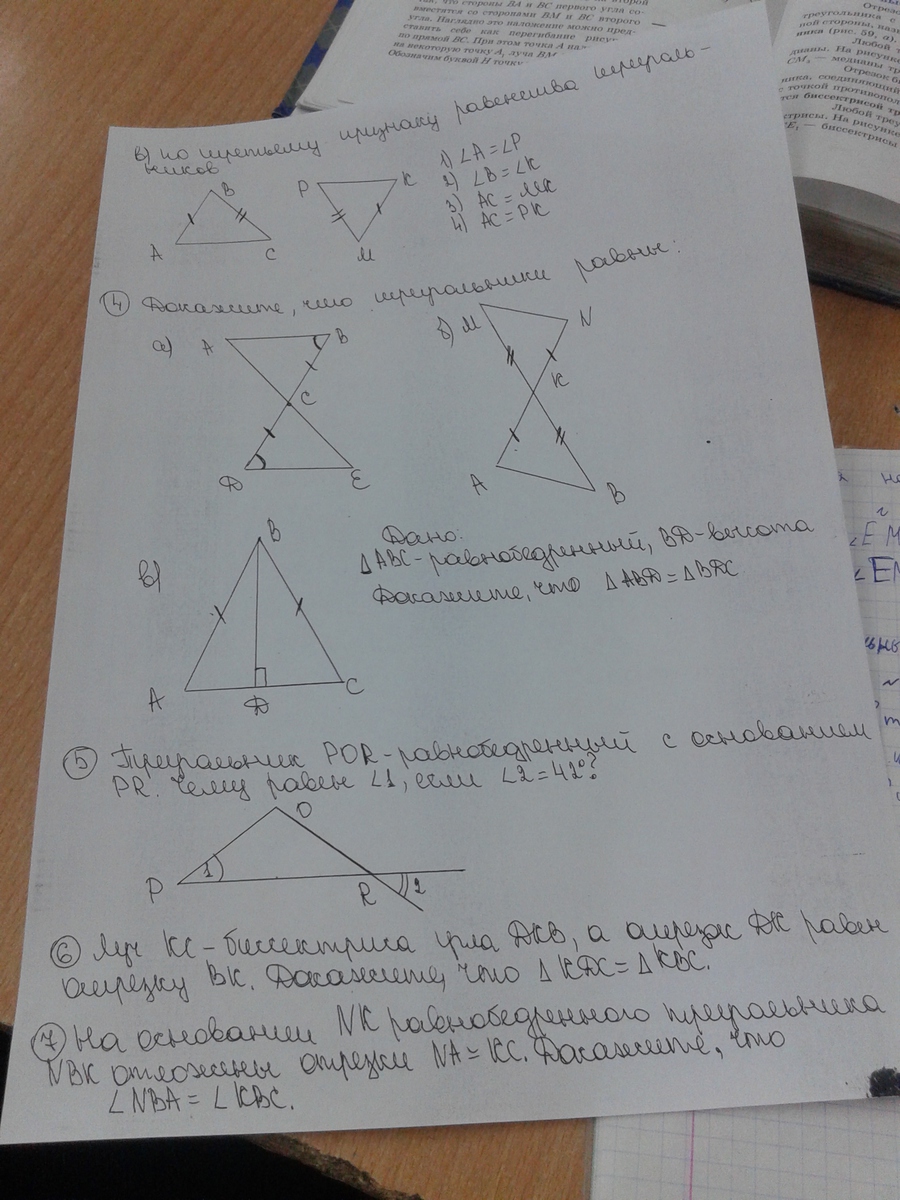 той, что стороны BA и BC первого угла со-
вместятся со сторонами BM и BC второго
угла. Наглядно это наложение можно пред-
ставить себе как перегибание
по прямой BC. При этом точка A
на некоторую точку A₁ луча BM
Обозначим буквой H точку
Отрезок
треугольника с
ной стороны, наз
ника (рис. 59, а).
Любой т
дианы. На рисунке
— медианы тр
Отрезок би
ника, соединяющий
с точкой противопол
тся биссектрисой тр
Любой треу
ктрисы. На рисунке
— биссектрисы
в) по третьему признаку равенства треуголь-
ников
B
A
C
P
K
M
1) ∠A = ∠P
2) ∠B = ∠K
3) AC = MK
4) AC = PK
4 Докажите, что треугольники равны:
а) A
B
C
D
E
б) M
N
K
A
B
в)
B
A
D
C
Дано:
△ABC - равнобедренный, BD - высота
Докажите, что △ABD = △BDC
5 Треугольник POR - равнобедренный с основанием
PR. Чему равен ∠1, если ∠2 = 42°?
O
P
1
R
2
6 Луч KC - биссектриса угла DKB, а отрезок DK равен
отрезку BK. Докажите, что △KDC = △KBC.
7 На основании NK равнобедренного треугольника
NBK отложены отрезки NA = KC. Докажите, что
∠NBA = ∠KBC.